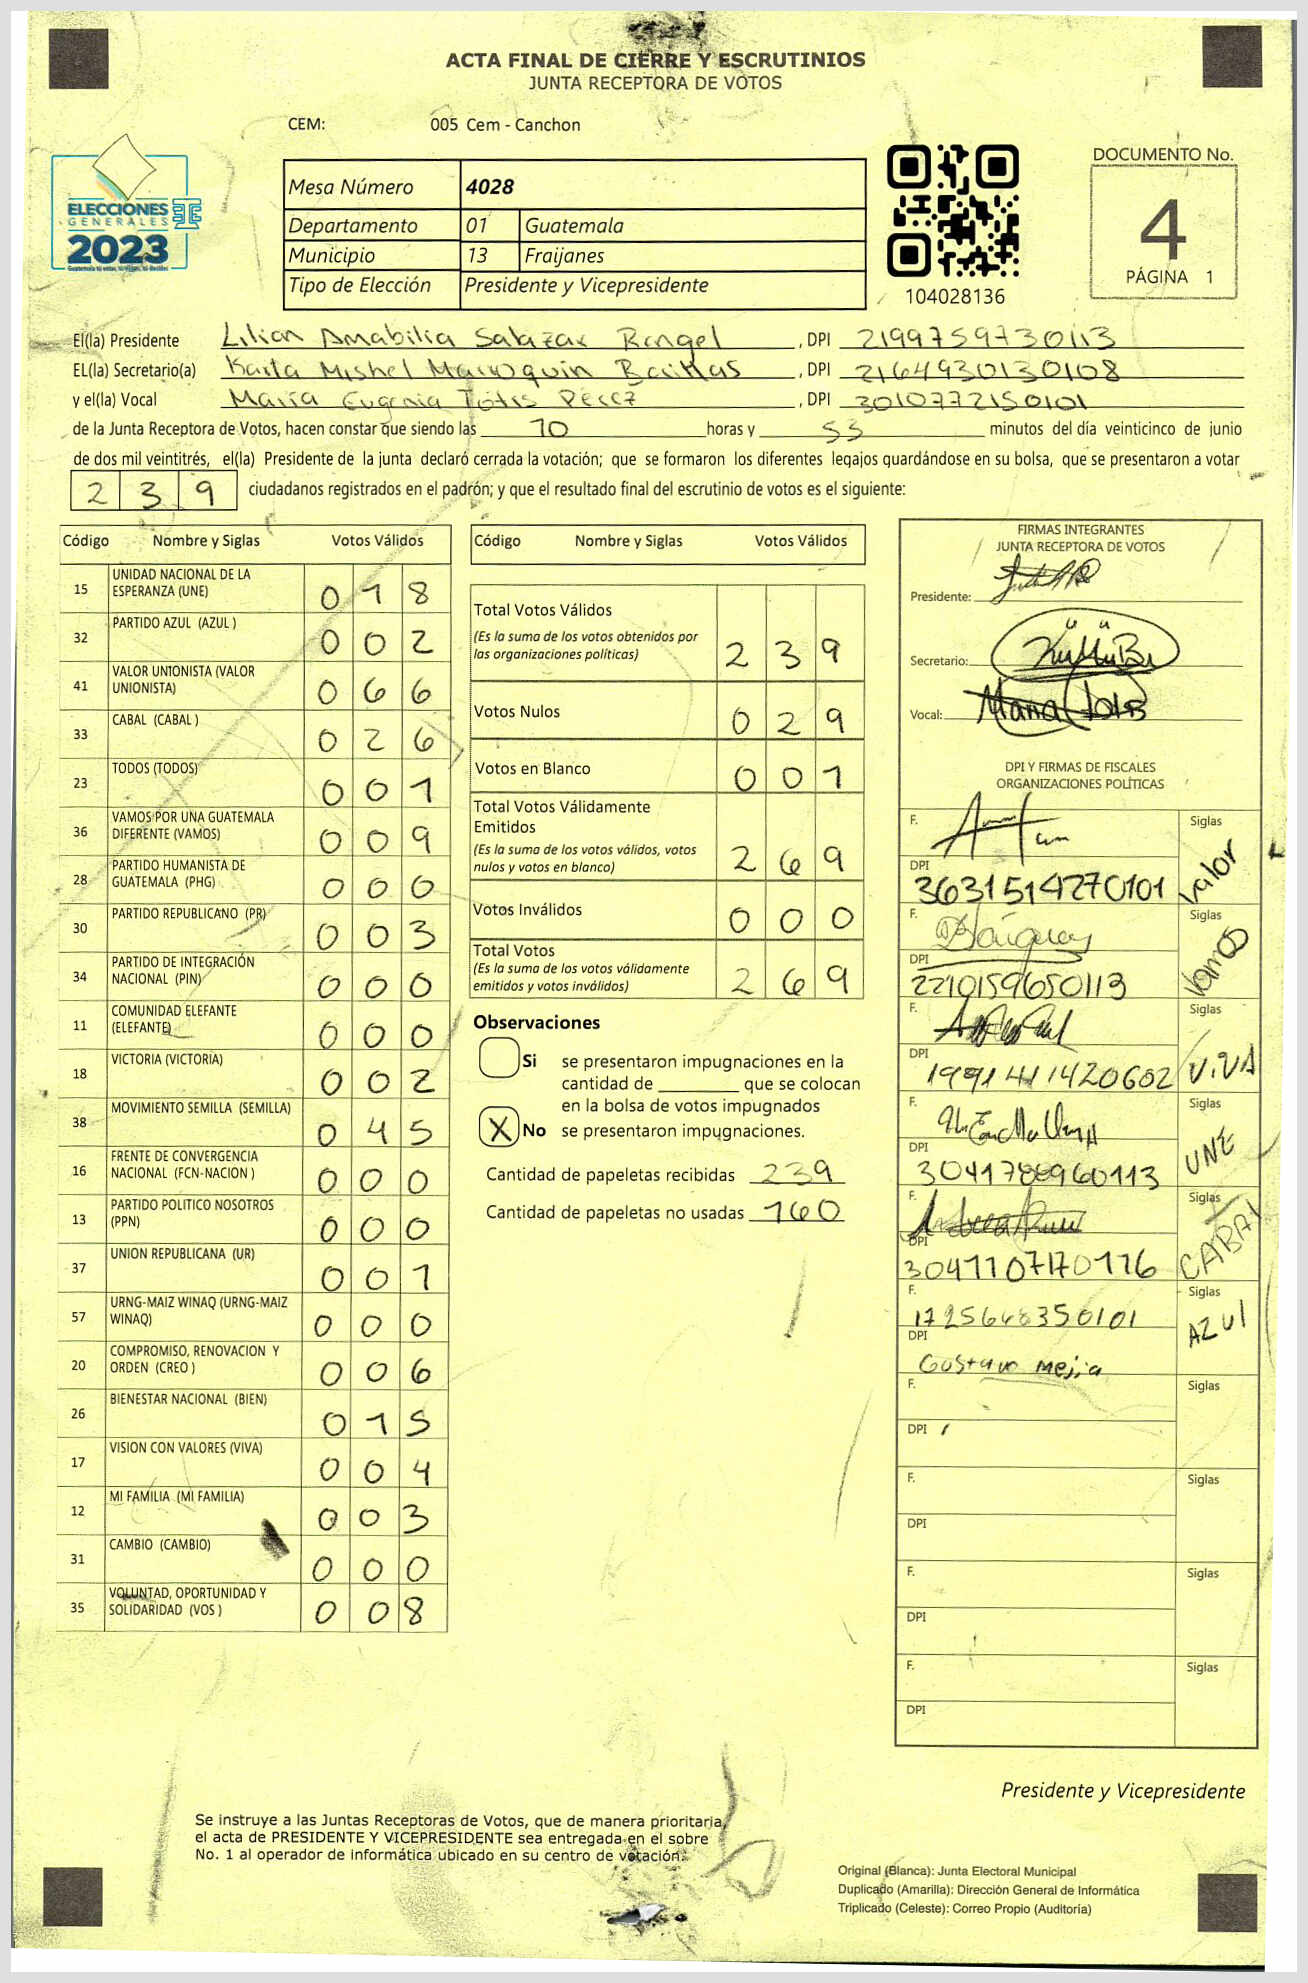 ACTA FINAL DE CIERRE Y ESCRUTINIOS
JUNTA RECEPTORA DE VOTOS
CEM: 005 Cem - Canchon
ELECCIONES
GENERALES
2023
Mesa Número 4028
Departamento 01 Guatemala
Municipio 13 Fraijanes
Tipo de Elección Presidente y Vicepresidente
104028136
DOCUMENTO No.
4
PÁGINA 1
El(la) Presidente Lilian Amabilia Salazar Rangel, DPI 2199759730113
EL(la) Secretario(a) Karla Mishel Marroquin Barillas, DPI 2164930130108
y el(la) Vocal María Eugenia Totis Pérez, DPI 3010772150101
de la Junta Receptora de Votos, hacen constar que siendo las 10 horas y 53 minutos del día veinticinco de junio
de dos mil veintitrés, el(la) Presidente de la junta declaró cerrada la votación; que se formaron los diferentes legajos guardándose en su bolsa, que se presentaron a votar
239 ciudadanos registrados en el padrón; y que el resultado final del escrutinio de votos es el siguiente:
Código Nombre y Siglas Votos Válidos
15 UNIDAD NACIONAL DE LA ESPERANZA (UNE) 018
32 PARTIDO AZUL (AZUL ) 002
41 VALOR UNIONISTA (VALOR UNIONISTA) 066
33 CABAL (CABAL ) 026
23 TODOS (TODOS) 001
36 VAMOS POR UNA GUATEMALA DIFERENTE (VAMOS) 009
28 PARTIDO HUMANISTA DE GUATEMALA (PHG) 000
30 PARTIDO REPUBLICANO (PR) 003
34 PARTIDO DE INTEGRACIÓN NACIONAL (PIN) 000
11 COMUNIDAD ELEFANTE (ELEFANTE) 000
18 VICTORIA (VICTORIA) 002
38 MOVIMIENTO SEMILLA (SEMILLA) 045
16 FRENTE DE CONVERGENCIA NACIONAL (FCN-NACION ) 000
13 PARTIDO POLITICO NOSOTROS (PPN) 000
37 UNION REPUBLICANA (UR) 001
57 URNG-MAIZ WINAQ (URNG-MAIZ WINAQ) 000
20 COMPROMISO, RENOVACION Y ORDEN (CREO ) 006
26 BIENESTAR NACIONAL (BIEN) 015
17 VISION CON VALORES (VIVA) 004
12 MI FAMILIA (MI FAMILIA) 003
31 CAMBIO (CAMBIO) 000
35 VOLUNTAD, OPORTUNIDAD Y SOLIDARIDAD (VOS ) 008
Código Nombre y Siglas Votos Válidos
Total Votos Válidos 239
(Es la suma de los votos obtenidos por las organizaciones políticas)
Votos Nulos 029
Votos en Blanco 001
Total Votos Válidamente Emitidos 269
(Es la suma de los votos válidos, votos nulos y votos en blanco)
Votos Inválidos 000
Total Votos 269
(Es la suma de los votos válidamente emitidos y votos inválidos)
Observaciones
Si se presentaron impugnaciones en la
cantidad de ________ que se colocan
en la bolsa de votos impugnados
X No se presentaron impugnaciones.
Cantidad de papeletas recibidas 239
Cantidad de papeletas no usadas 160
FIRMAS INTEGRANTES
JUNTA RECEPTORA DE VOTOS
Presidente:
Secretario:
Vocal:
DPI Y FIRMAS DE FISCALES
ORGANIZACIONES POLÍTICAS
F. Siglas Valor
DPI 3631514270101
F. Siglas Vamos
DPI 2210159650113
F. Siglas VIVA
DPI 1991411420602
F. Siglas UNE
DPI 3041788960113
F. Siglas CABAL
DPI 3041107170116
F. 1725648350101 Siglas AZUL
DPI Gustavo Mejia
F. Siglas
DPI
F. Siglas
DPI
F. Siglas
DPI
F. Siglas
DPI
Presidente y Vicepresidente
Se instruye a las Juntas Receptoras de Votos, que de manera prioritaria,
el acta de PRESIDENTE Y VICEPRESIDENTE sea entregada en el sobre
No. 1 al operador de informática ubicado en su centro de votación.
Original (Blanca): Junta Electoral Municipal
Duplicado (Amarilla): Dirección General de Informática
Triplicado (Celeste): Correo Propio (Auditoría)